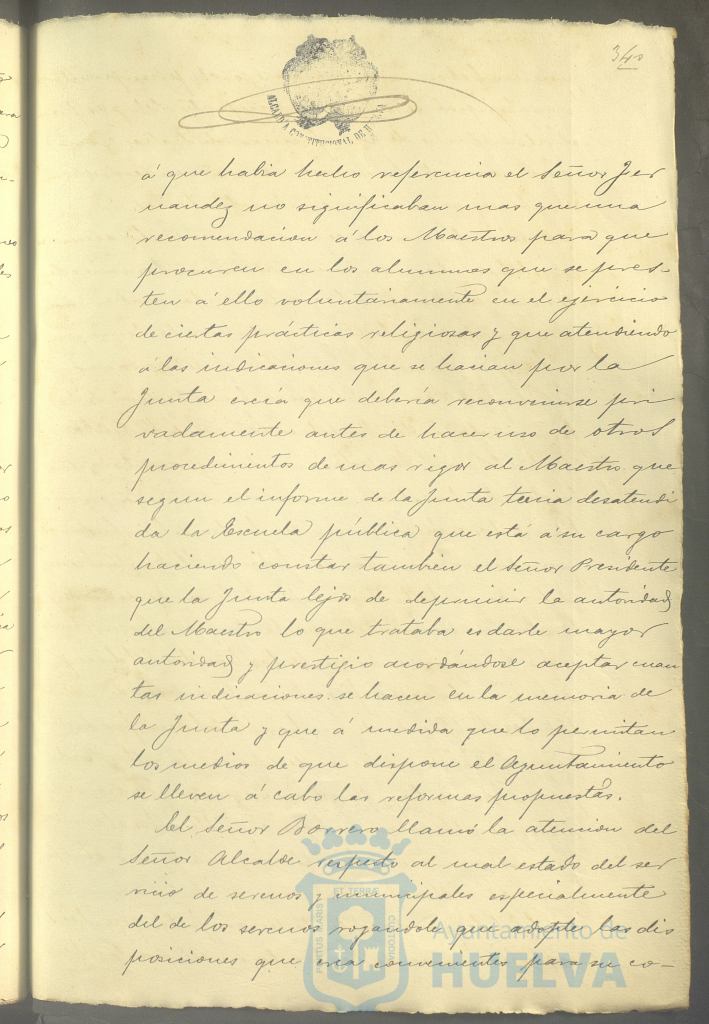 340
ALCALDIA CONSTITUCIONAL DE HUELVA
á que habia hecho referencia el Señor Fer
nandez no significaban mas que una
recomendacion á los Maestros para que
procuren en los alumnos que se pres-
ten á ello voluntariamente en el ejercicio
de ciertas prácticas religiosas y que atendiendo
á las indicaciones que se hacian por la
Junta creia que deberia reconvenirse pri
vadamente antes de hacer uso de otros
procedimientos de mas rigor al Maestro que
segun el informe de la Junta tenia desatendi
da la Escuela pública que está á su cargo
haciendo constar tambien el Señor Presidente
que la Junta lejos de deprimir la autoridad
del Maestro lo que trataba es darle mayor
autoridad y prestigio acordándose aceptar cuan
tas indicaciones se hacen en la memoria de
la Junta y que á medida que lo permitan
los medios de que dispone el Ayuntamiento
se lleven á cabo las reformas propuestas.
El Señor Borrero llamó la atencion del
Señor Alcalde respecto al mal estado del ser
vicio de serenos y municipales especialmente
del de los serenos rogandole que adopte las dis
posiciones que crea convenientes para su co-
Ayuntamiento de
HUELVA
PORTUS MARIS
ET TERRAE
CUSTODIA